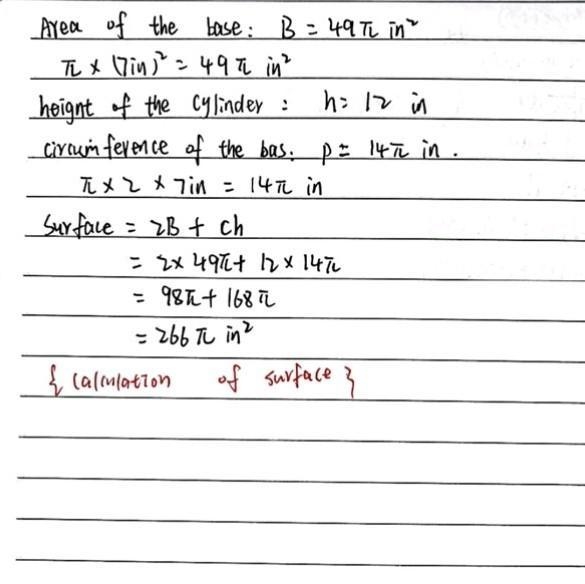 Area of the base: B = 49π in²
π × (7in)² = 49π in²
heignt of the cylinder : h = 12 in
circumference of the bas: p = 14π in.
π × 2 × 7in = 14π in
Surface = 2B + ch
= 2× 49π + 12 × 14π
= 98π + 168π
= 266 π in²
{ Calculation of surface }